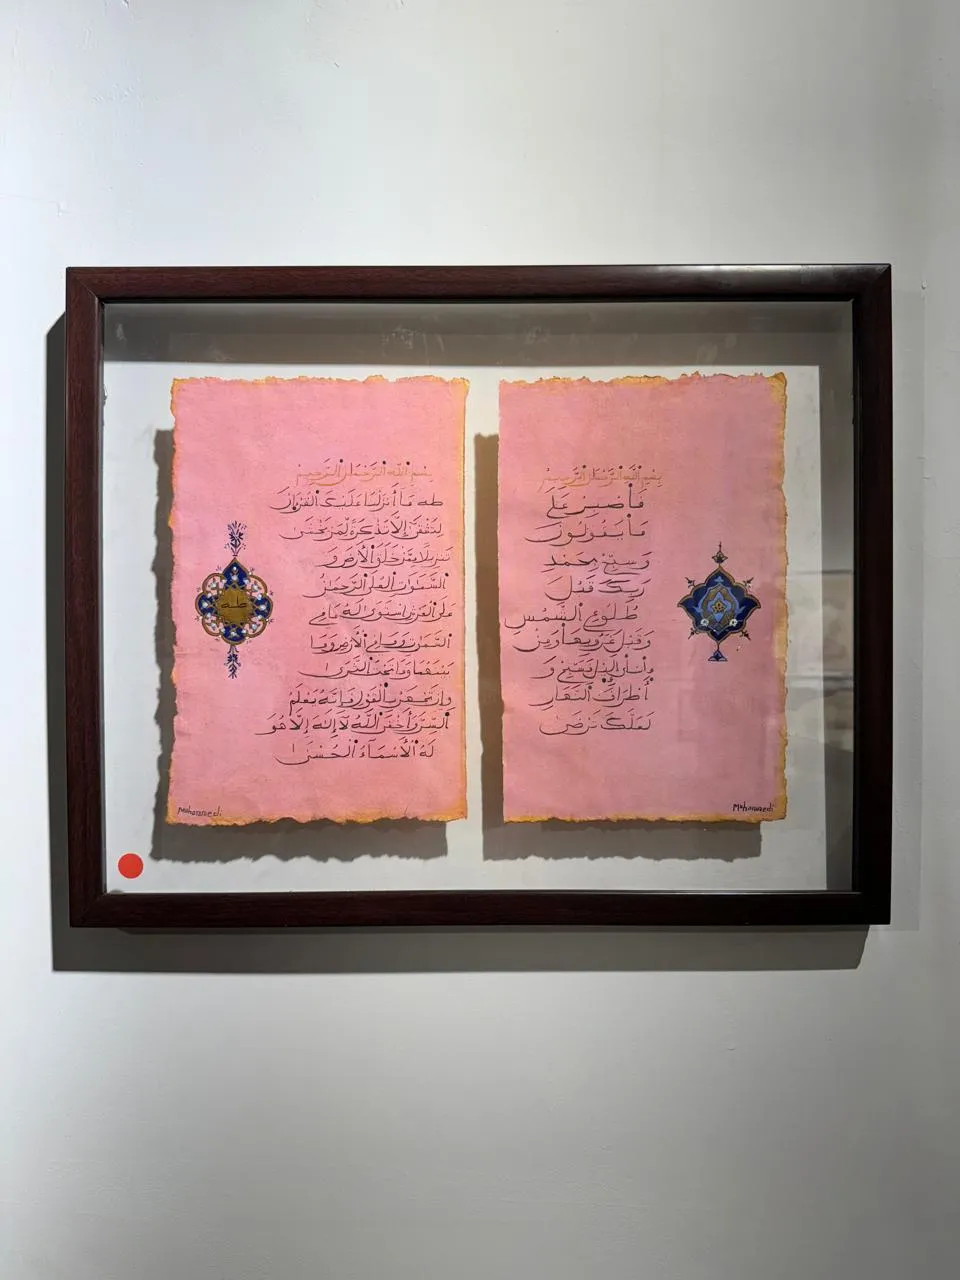 بسم الله الرحمن الرحيم
فاصبر على
ما يقولون
وسبح بحمد
ربك قبل
طلوع الشمس
وقبل غروبها ومن
ءانائ اليل فسبح و
أطراف النهار
لعلك ترضى
Mohammedi
بسم الله الرحمان الرحيم
طه ما أنزلنا عليك القرءان
لتشقى إلا تذكرة لمن يخشى
تنزيلا ممن خلق الأرض و
السماوات العلى الرحمان
على العرش استوى له ما في
السماوات وما في الأرض وما
بينهما وما تحت الثرى
وإن تجهر بالقول فإنه يعلم
السر وأخفى الله لا إله إلا هو
له الأسماء الحسنى
طه
Mohammedi